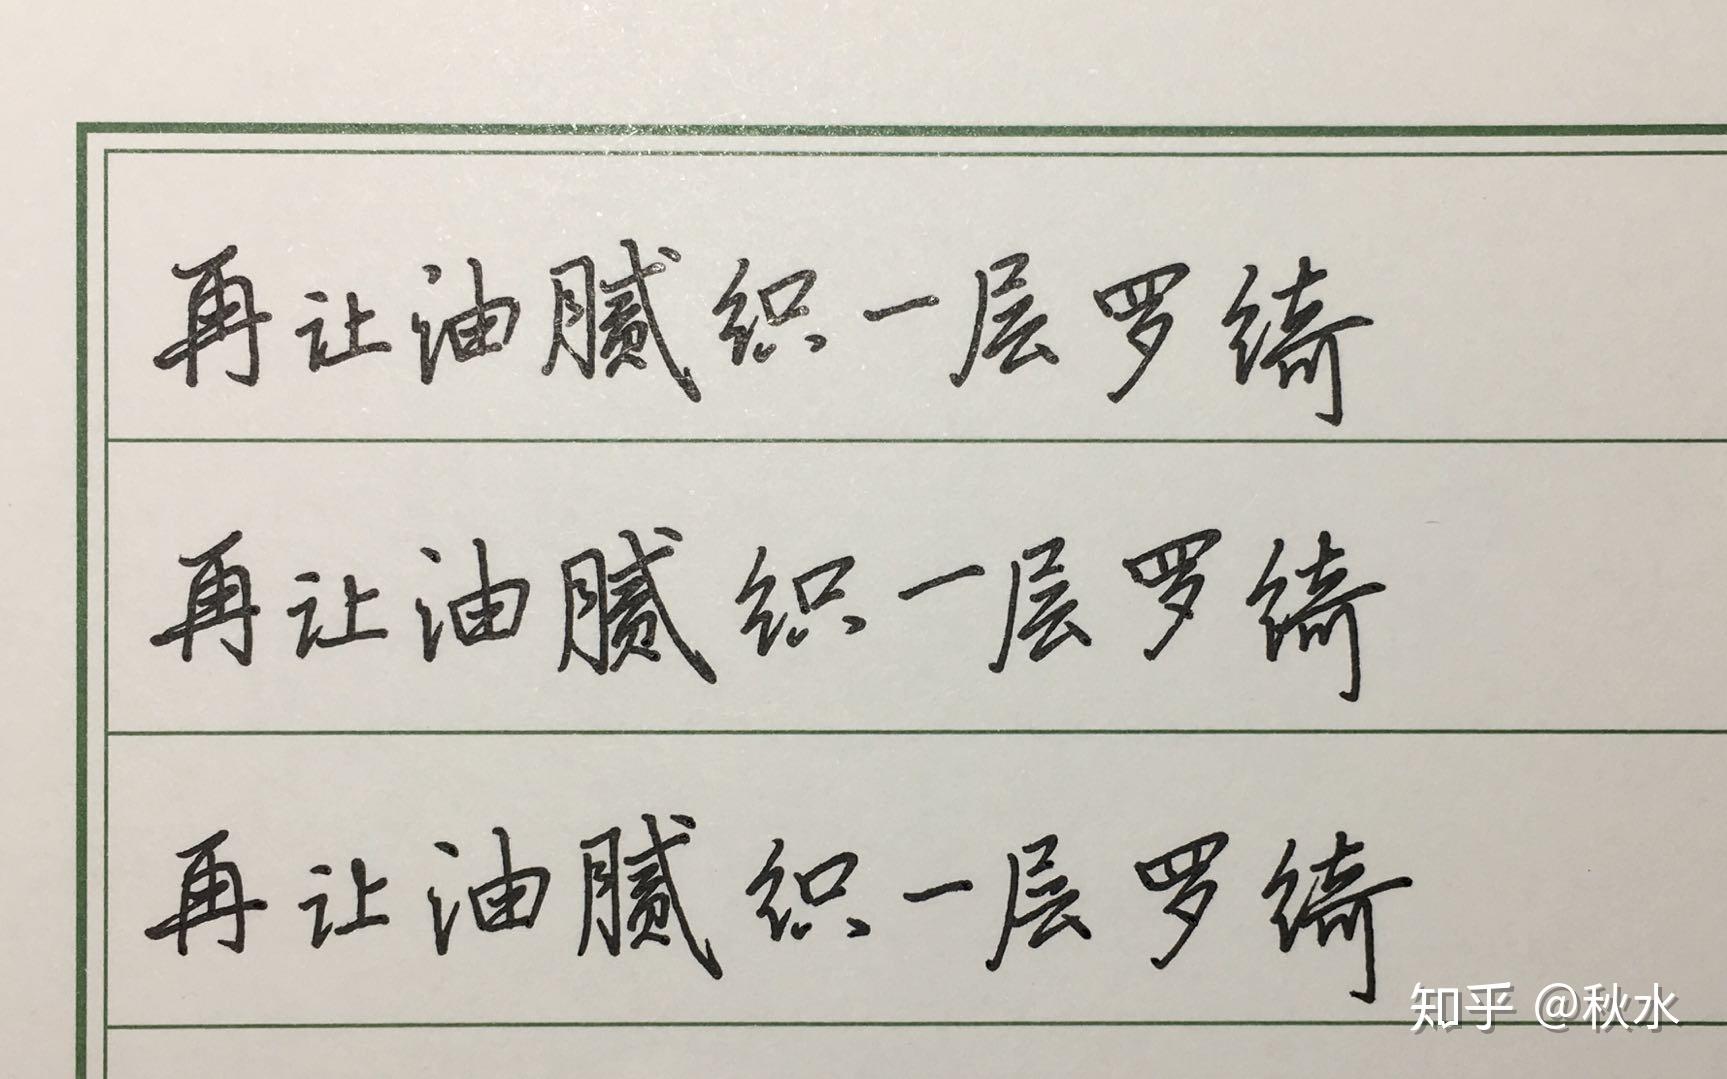 再让油腻织一层罗绮
再让油腻织一层罗绮
再让油腻织一层罗绮
知乎 @秋水